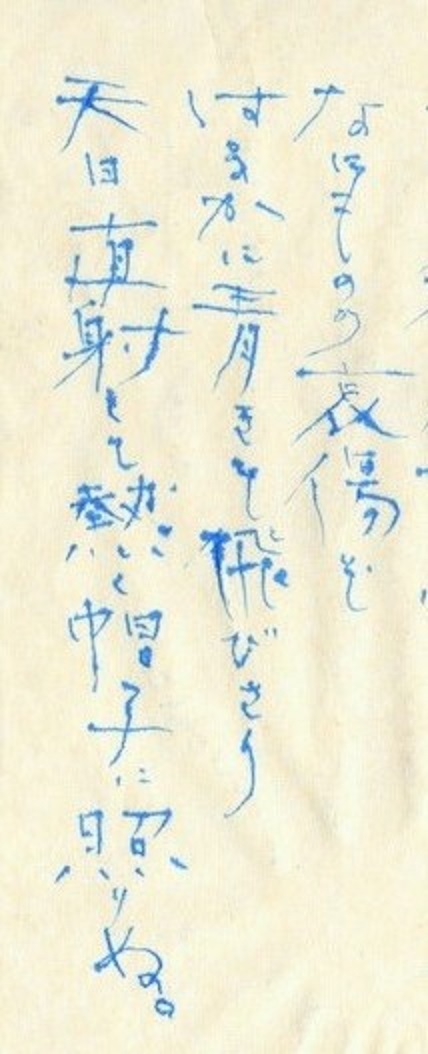 なにものの哀傷ぞ
はるかに青きを飛びさり
天日直射して熱く帽子に照りぬ。